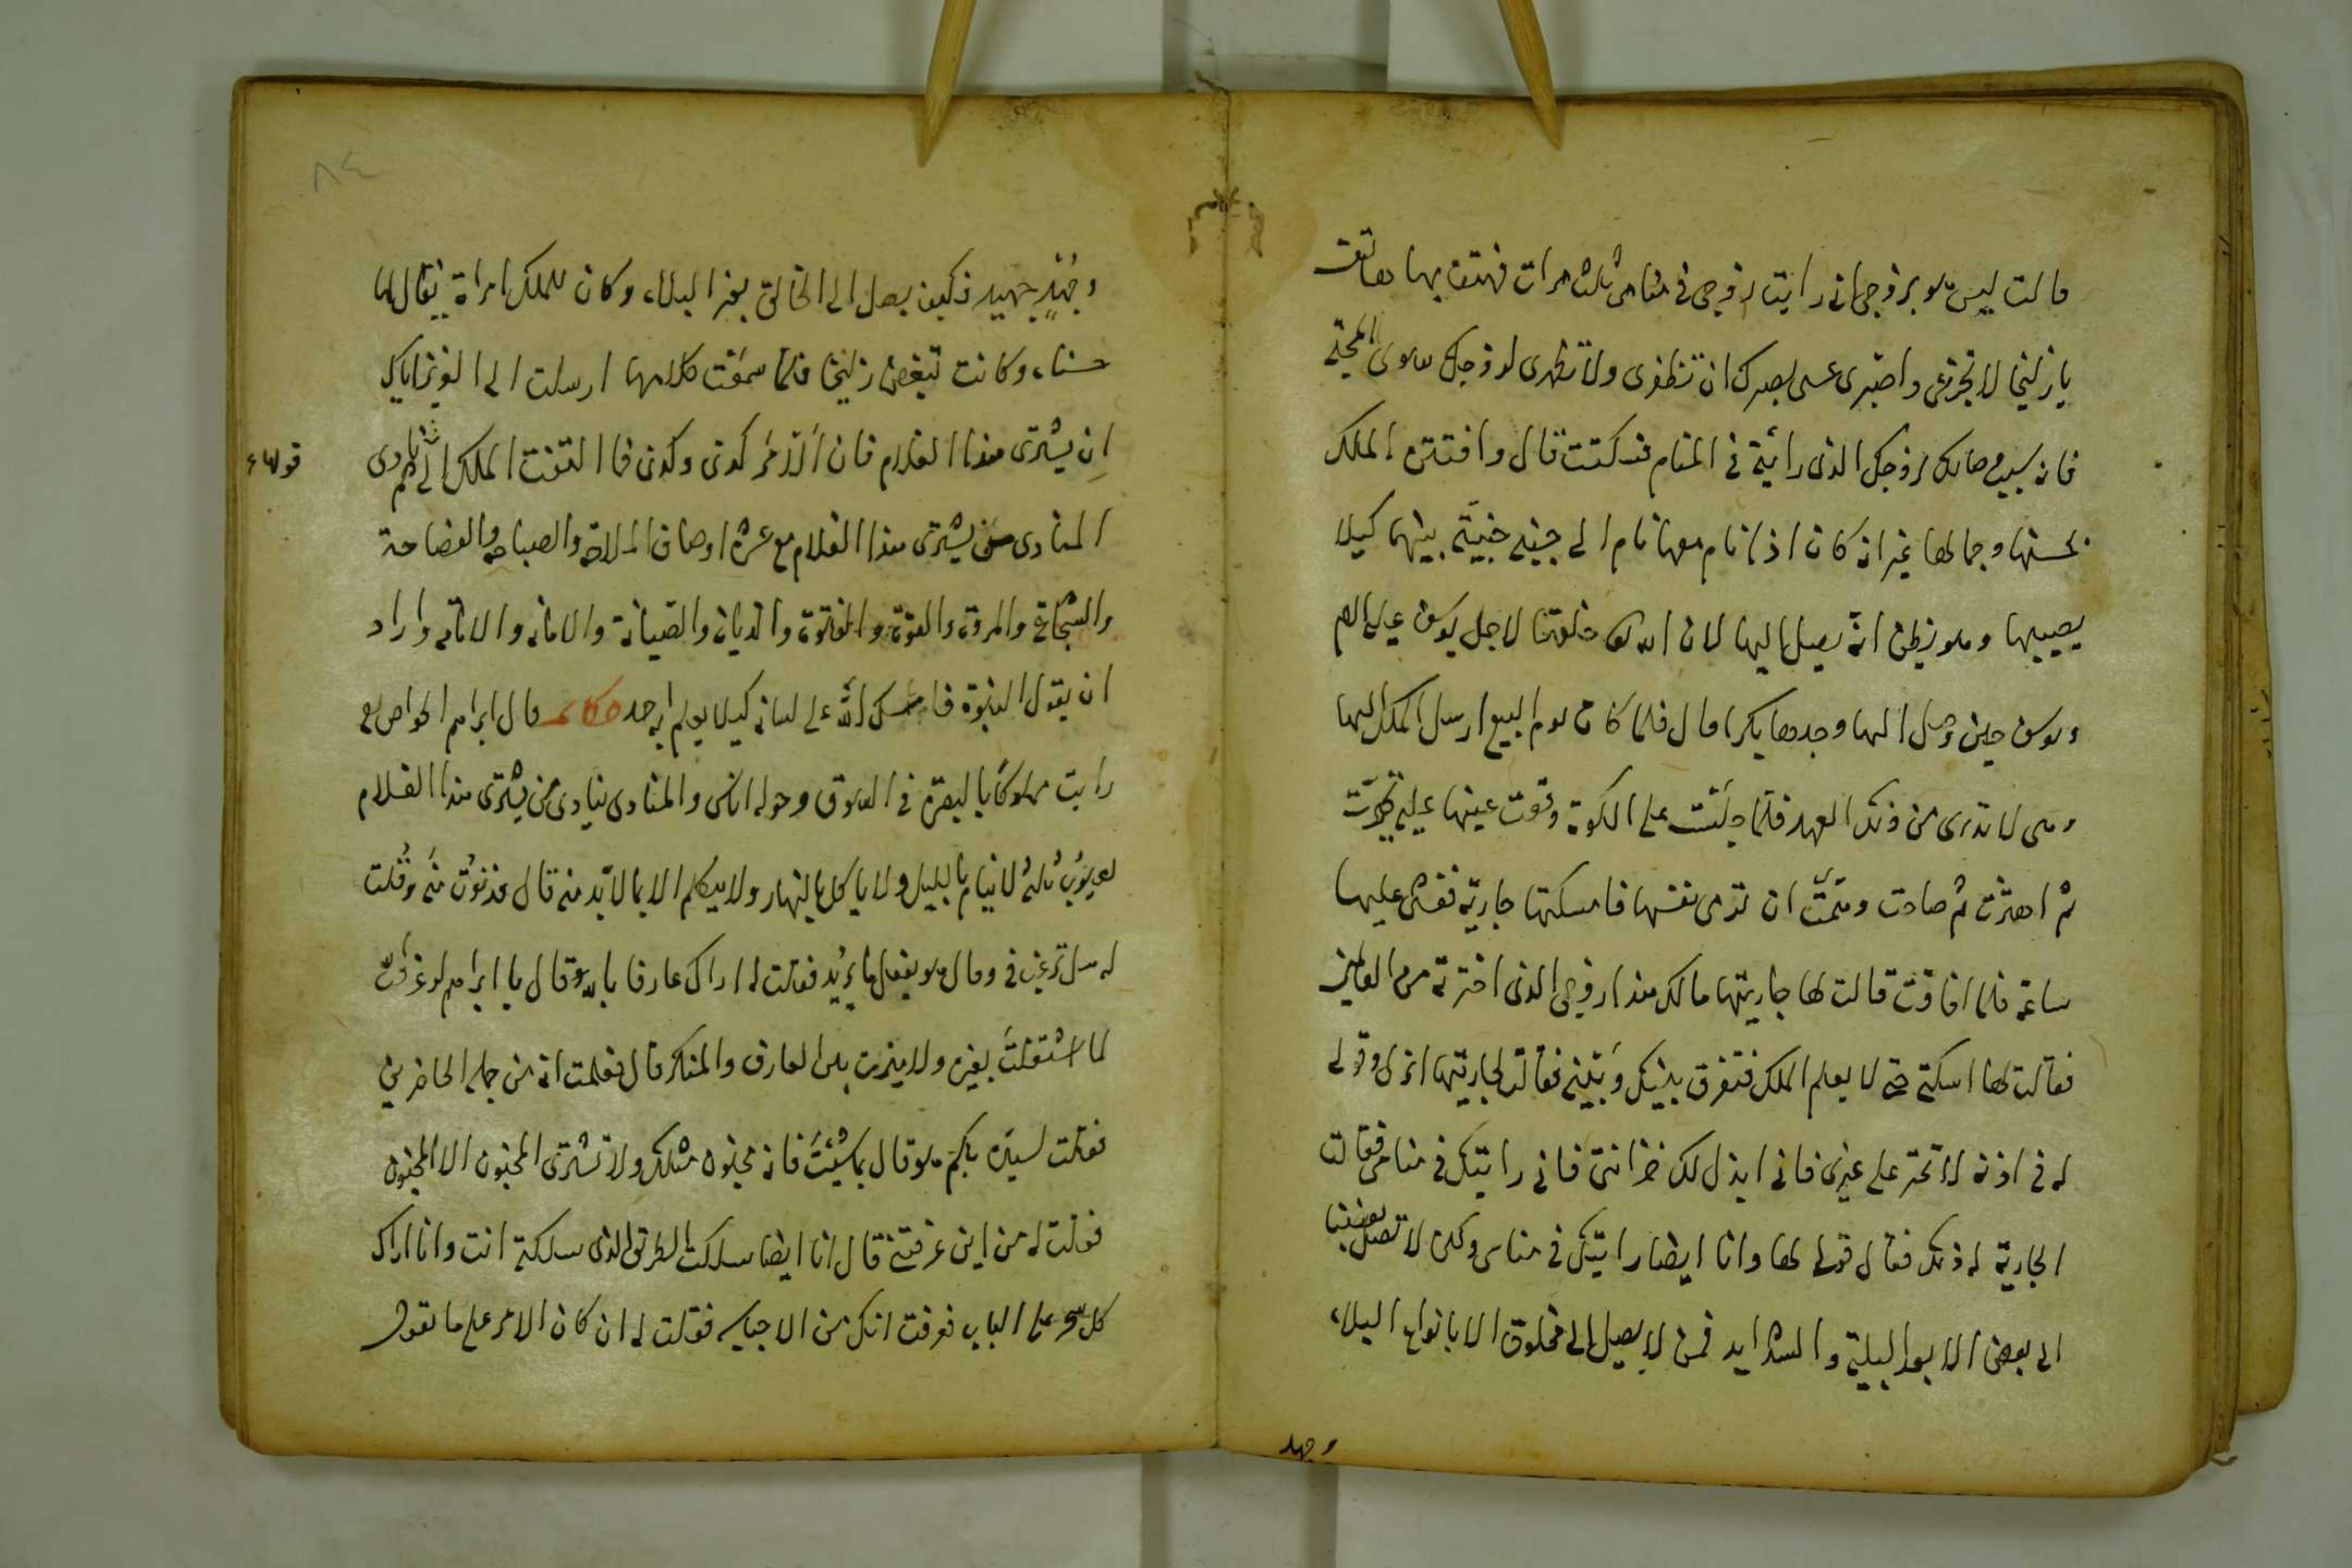 قالت ليس هو بزوجي اني رايت زوجي في منامي ثلاث مرات فهتف بها هاتف
يا زليخا لا تجزعي واصبري عسى بصبرك ان تظفري ولا تظهري لزوجك سوى المحبة
فانه سبب وصالك لزوجك الذي رأيته في المنام فسكتت قال وافتتن الملك
بحسنها وجمالها غير انه كان اذا نام معها نام الى جنبه جنية بينهما كيلا
يصيبها وهو يظن انه يصل اليها لان الله تعالى خلقها لاجل يوسف عليه السلام
ويوسف حين وصل اليها وجدها بكرا قال فلما كان يوم البيع ارسل الملك اليها
وهي لا تدري من ذلك العهد فلما جلست على الكوة وقعت عينها عليه تحيرت
ثم اهتزت ثم صاحت وهمت ان ترمي نفسها فامسكتها جارية فغشي عليها
ساعة فلما افاقت قالت لها جاريتها مالك هذا زوجي الذي اخترته من العالمين
فقالت لها اسكتي حتى لا يعلم الملك فتفرق بينك وبينه فقالت لجاريتها انزلي وقولي
له في اذنه لا تختر على غيري فاني ابذل لك خزائني فاني رايتك في منامي فقالت
الجارية له ذلك فقال قولي لها وانا ايضا رايتك في منامي ولكن لا تصل بعضنا
الى بعض الا بعد البلية والشدايد فمن لا يصل الى مخلوق الا بانواع البلاء
وجهد
٨٤
وجهد جهيد فكيف يصل الى الخالق بغير البلاء وكان للملك امراة يقال لها
حسناء وكانت تبغض زليخا فلما سمعت كلامها ارسلت الى العزيز اياك
ان يشتري هذا الغلام فان الامر كدتي وكدتي فما التفت الملك الى قولها ثم نادى
قولهاء
المنادي من يشتري هذا الغلام مع عشرة اوصاف الملاحة والصباحة والفصاحة
والشجاعة والمروة والقوة والفتوة والديانة والصيانة والامانة والامانة واراد
ان يقول النبوة فامسك الله على لسانه كيلا يعلم به احد حكاية قال ابراهيم الخواص رايت
رايت مملوكا بالبصرة في السوق وحوله اناس والمنادي ينادي من يشتري هذا الغلام
بعيوب ثلاثة لا ينام بالليل ولا ياكل بالنهار ولا يتكلم الا بما لا بد منه قال فدنوت منه وقلت
له هل ترغب في وقال هو يفعل ما يريد فقلت له اراك عارفا بالله قال يا ابراهيم لو عرفت
لما اشتغلت بغيره ولا ميزت بين العارف والمنكر قال فعلمت انه من جملة الحاضرين
فقلت لسيده بكم هو قال بما شئت فانه مجنون مثلك ولا تشتري المجنون الا المجنون
فقلت له من اين عرفتني قال انا ايضا سلكت الطريق الذي سلكته انت وانا اراك
كل سحر على الباب فعرفت انك من الاحباب فقلت له ان كان الامر على ما تقول